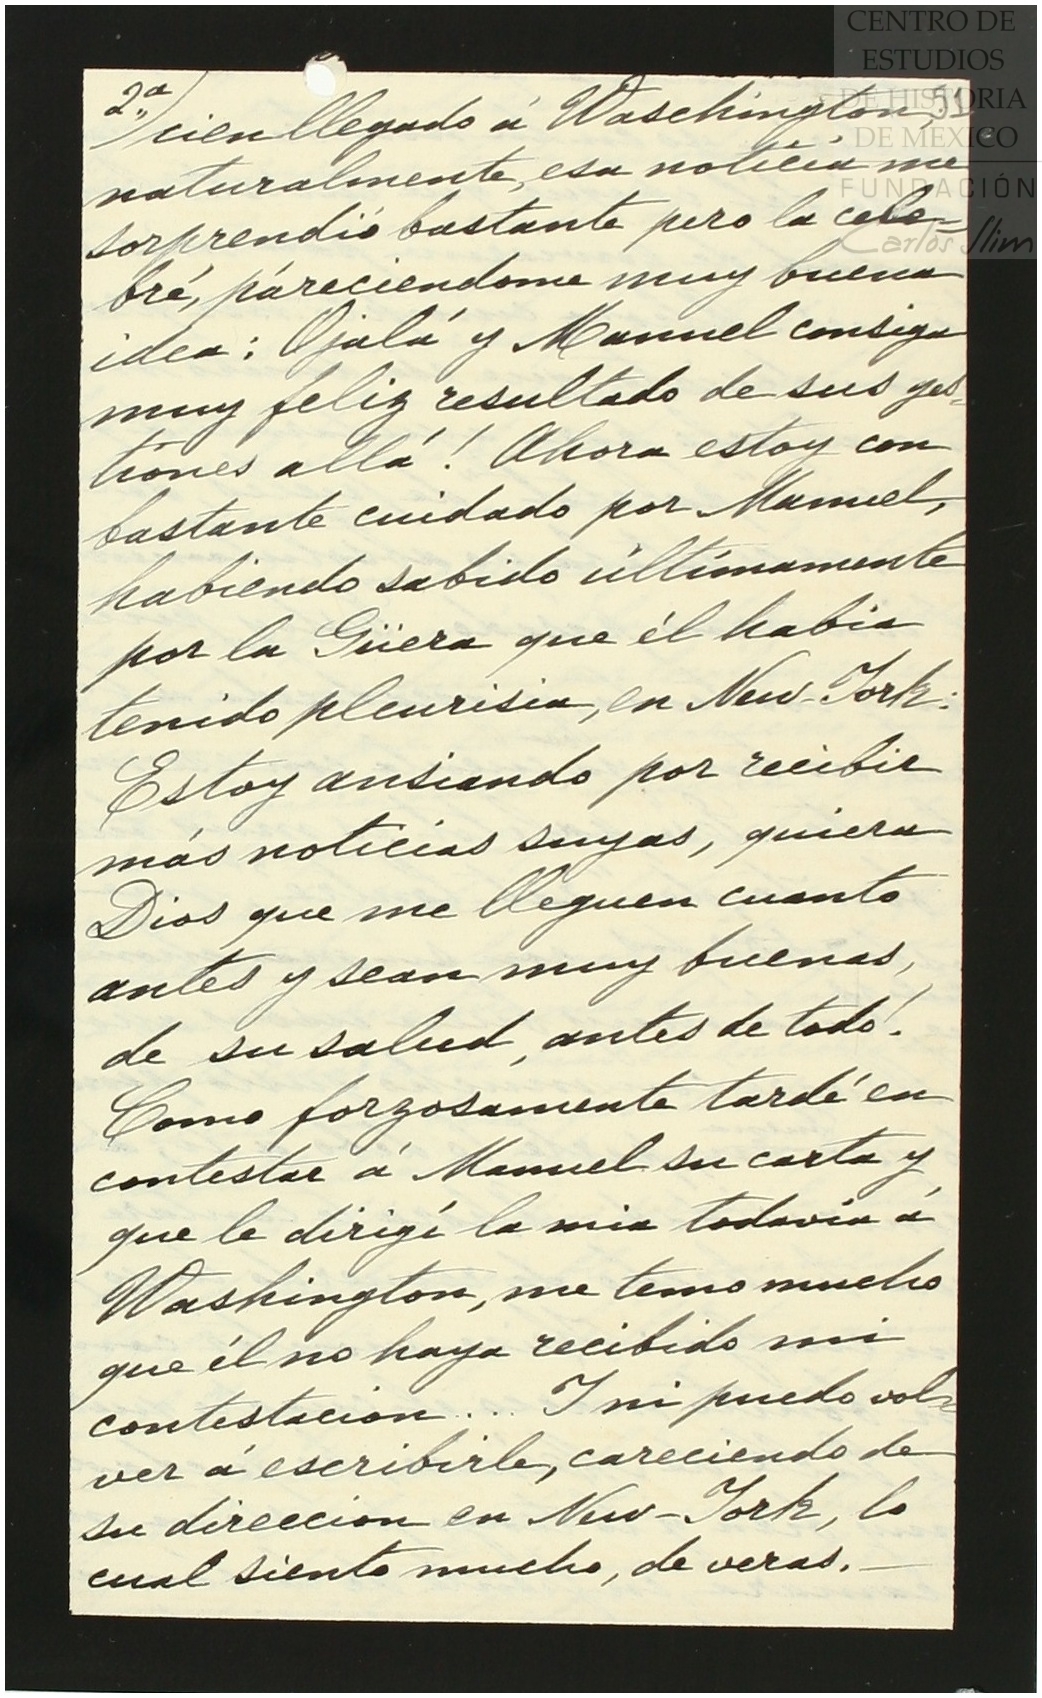 CENTRO DE
ESTUDIOS
DE HISTORIA
DE MÉXICO
FUNDACIÓN
Carlos Slim
2ª)
cien llegado á Waschington,
naturalmente, esa noticia me
sorprendió bastante pero la cele-
bré, páreciendome muy buena
idea: Ojalá y Manuel consiga
muy feliz resultado de sus ges-
tiónes allá! Ahora estoy con
bastante cuidado por Manuel,
habiendo sabido últimamente
por la Güera que él habia
tenido pleurisia, en New-York:
Estoy ansiando por recibir
más noticias suyas, quiera
Dios que me lleguen cuanto
antes y sean muy buenas,
de su salud, antes de todo!.
Como forzosamente tardé en
contestar á Manuel su carta y
que le dirigí la mia todavia á
Washington, me temo mucho
que él no haya recibido mi
contestacion... I ni puedo vol-
ver á escribirle, careciendo de
su direccion en New-York, lo
cual siento mucho, de veras.—